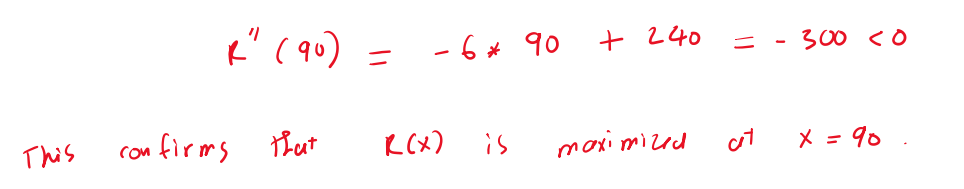 R"(90) = -6 * 90 + 240 = - 300 < 0
This confirms that R(x) is maximized at x = 90 .